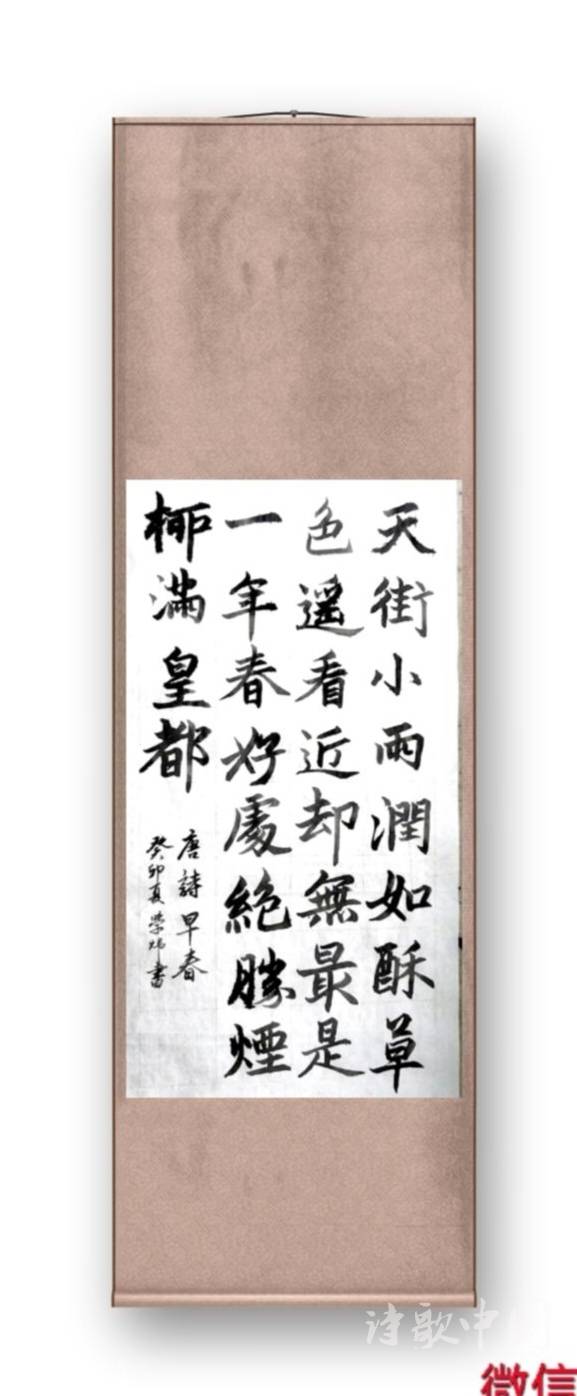 天街小雨潤如酥草
色遥看近却無最是
一年春好處絶勝煙
柳滿皇都
唐詩早春
癸卯夏榮炜書
诗歌中国
微信